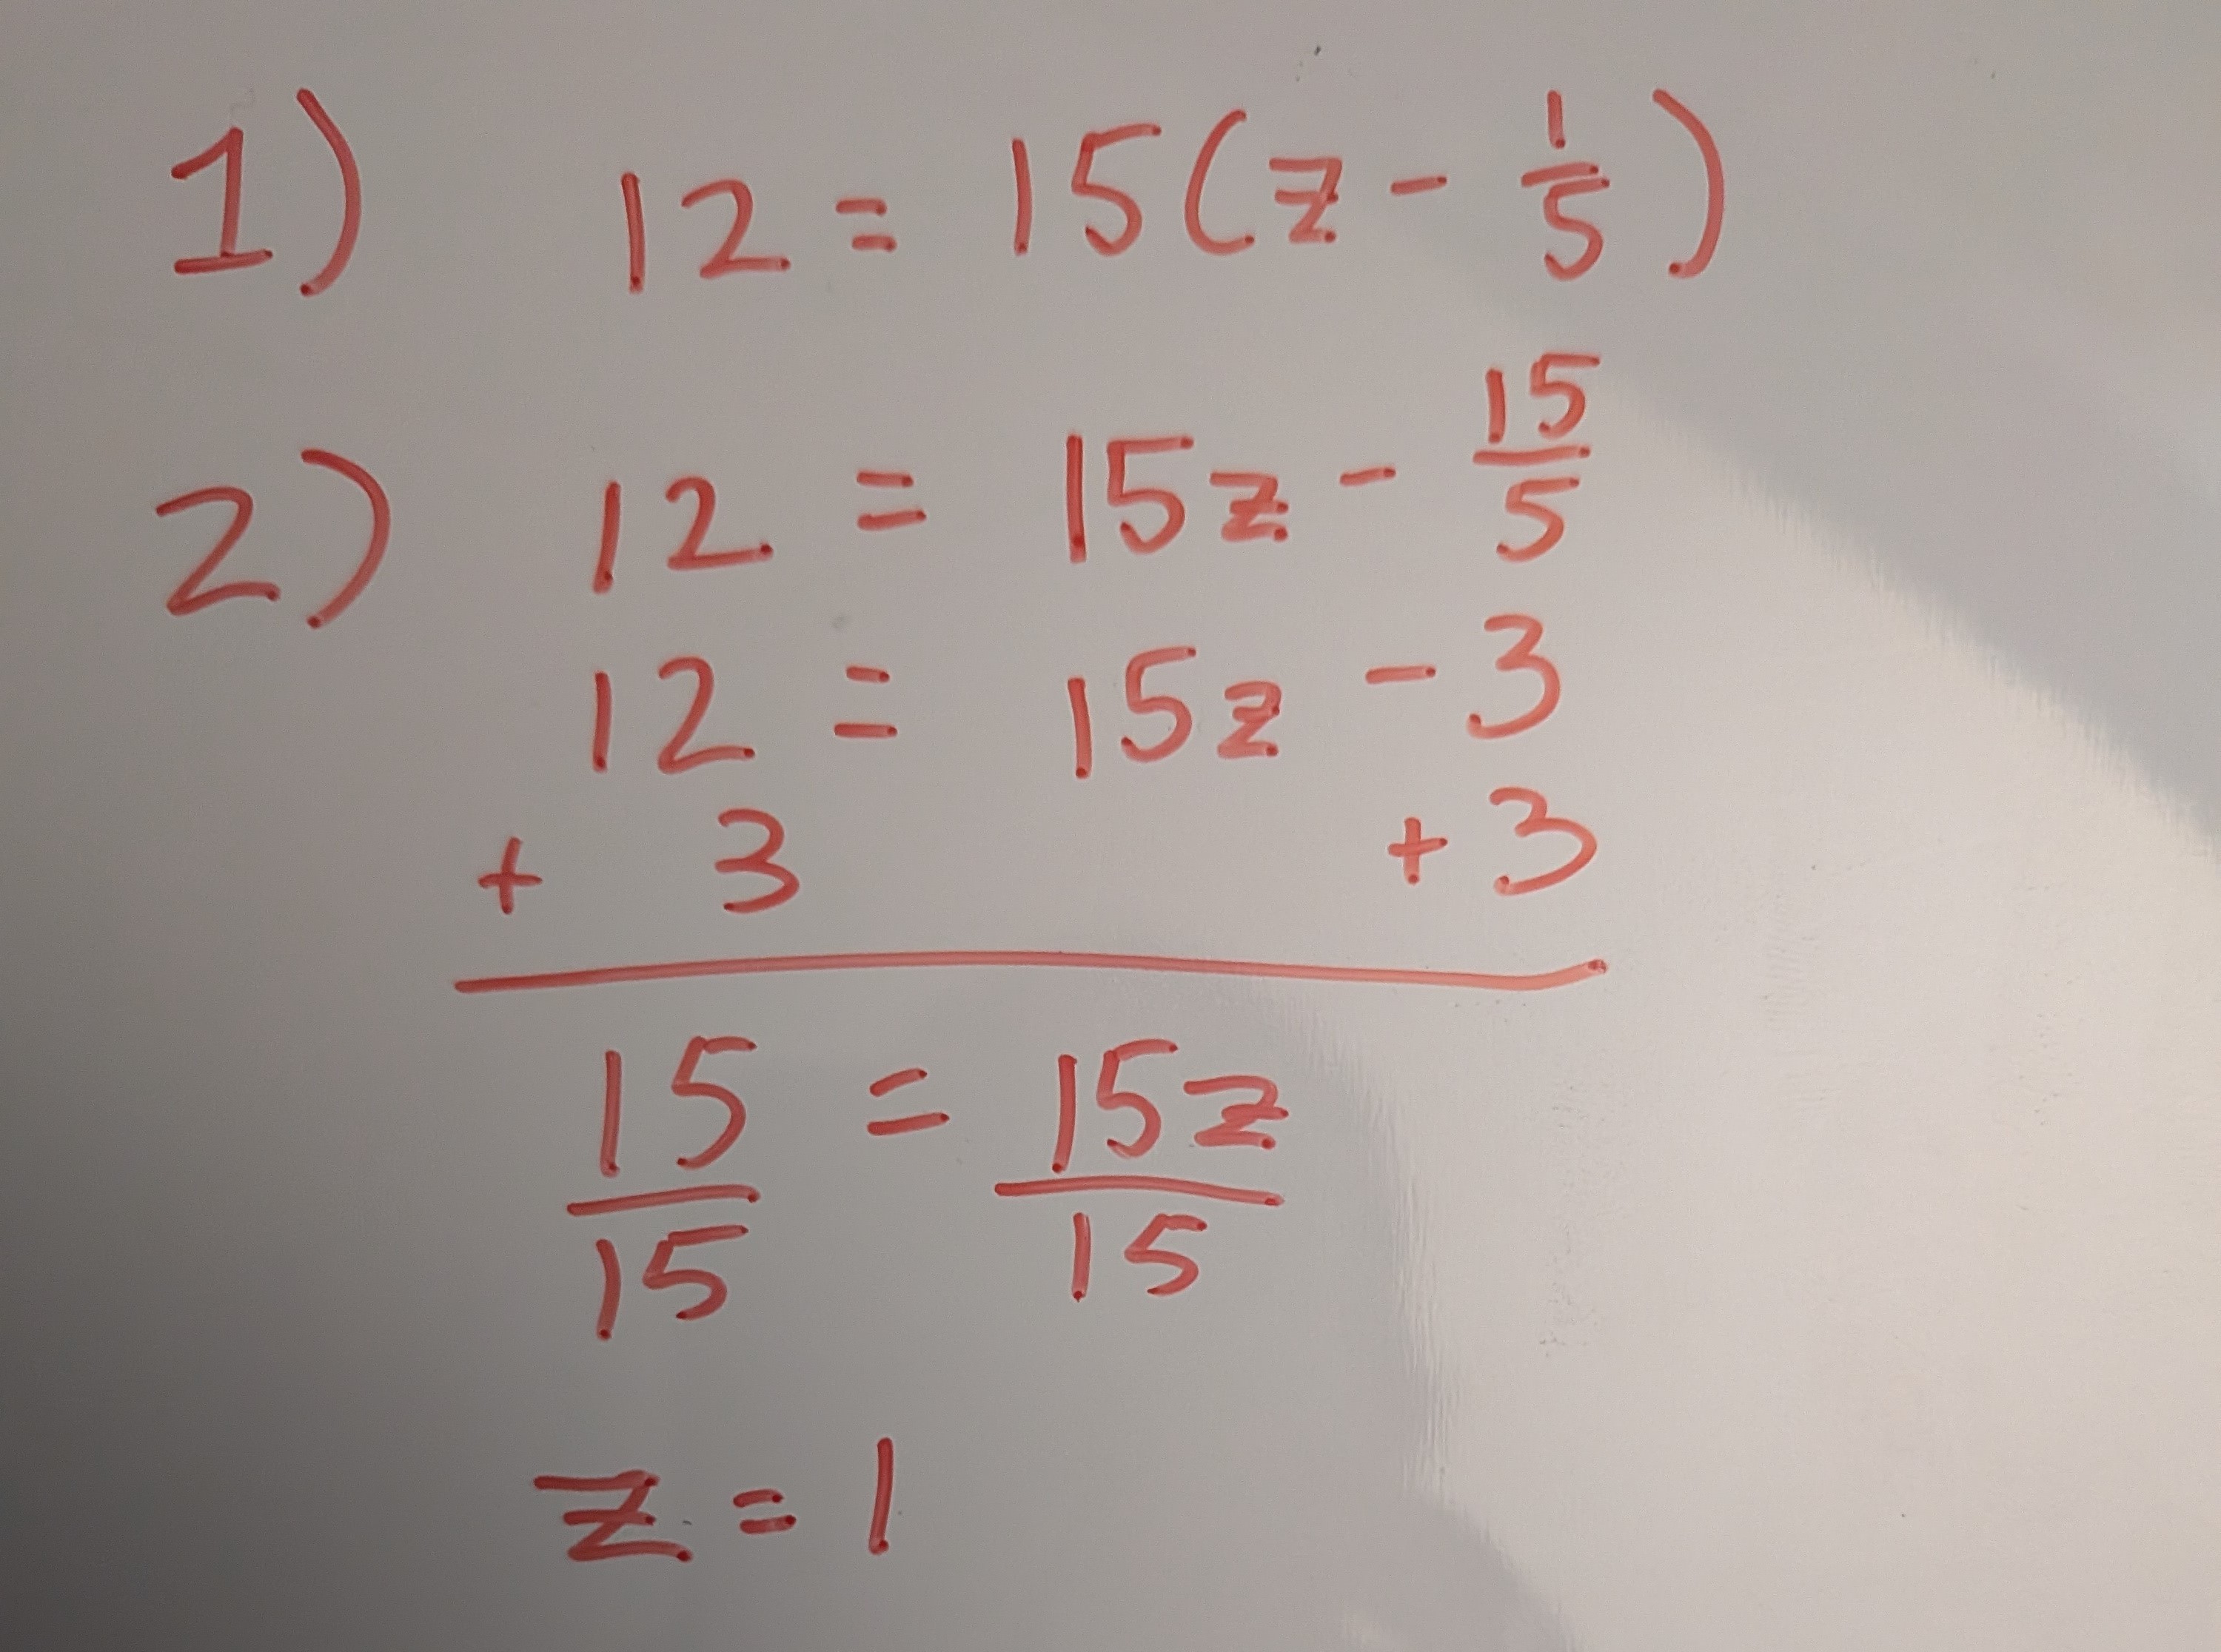 1) 12 = 15(z - 1/5)
2) 12 = 15z - 15/5
12 = 15z - 3
+ 3 + 3
15/15 = 15z/15
z = 1